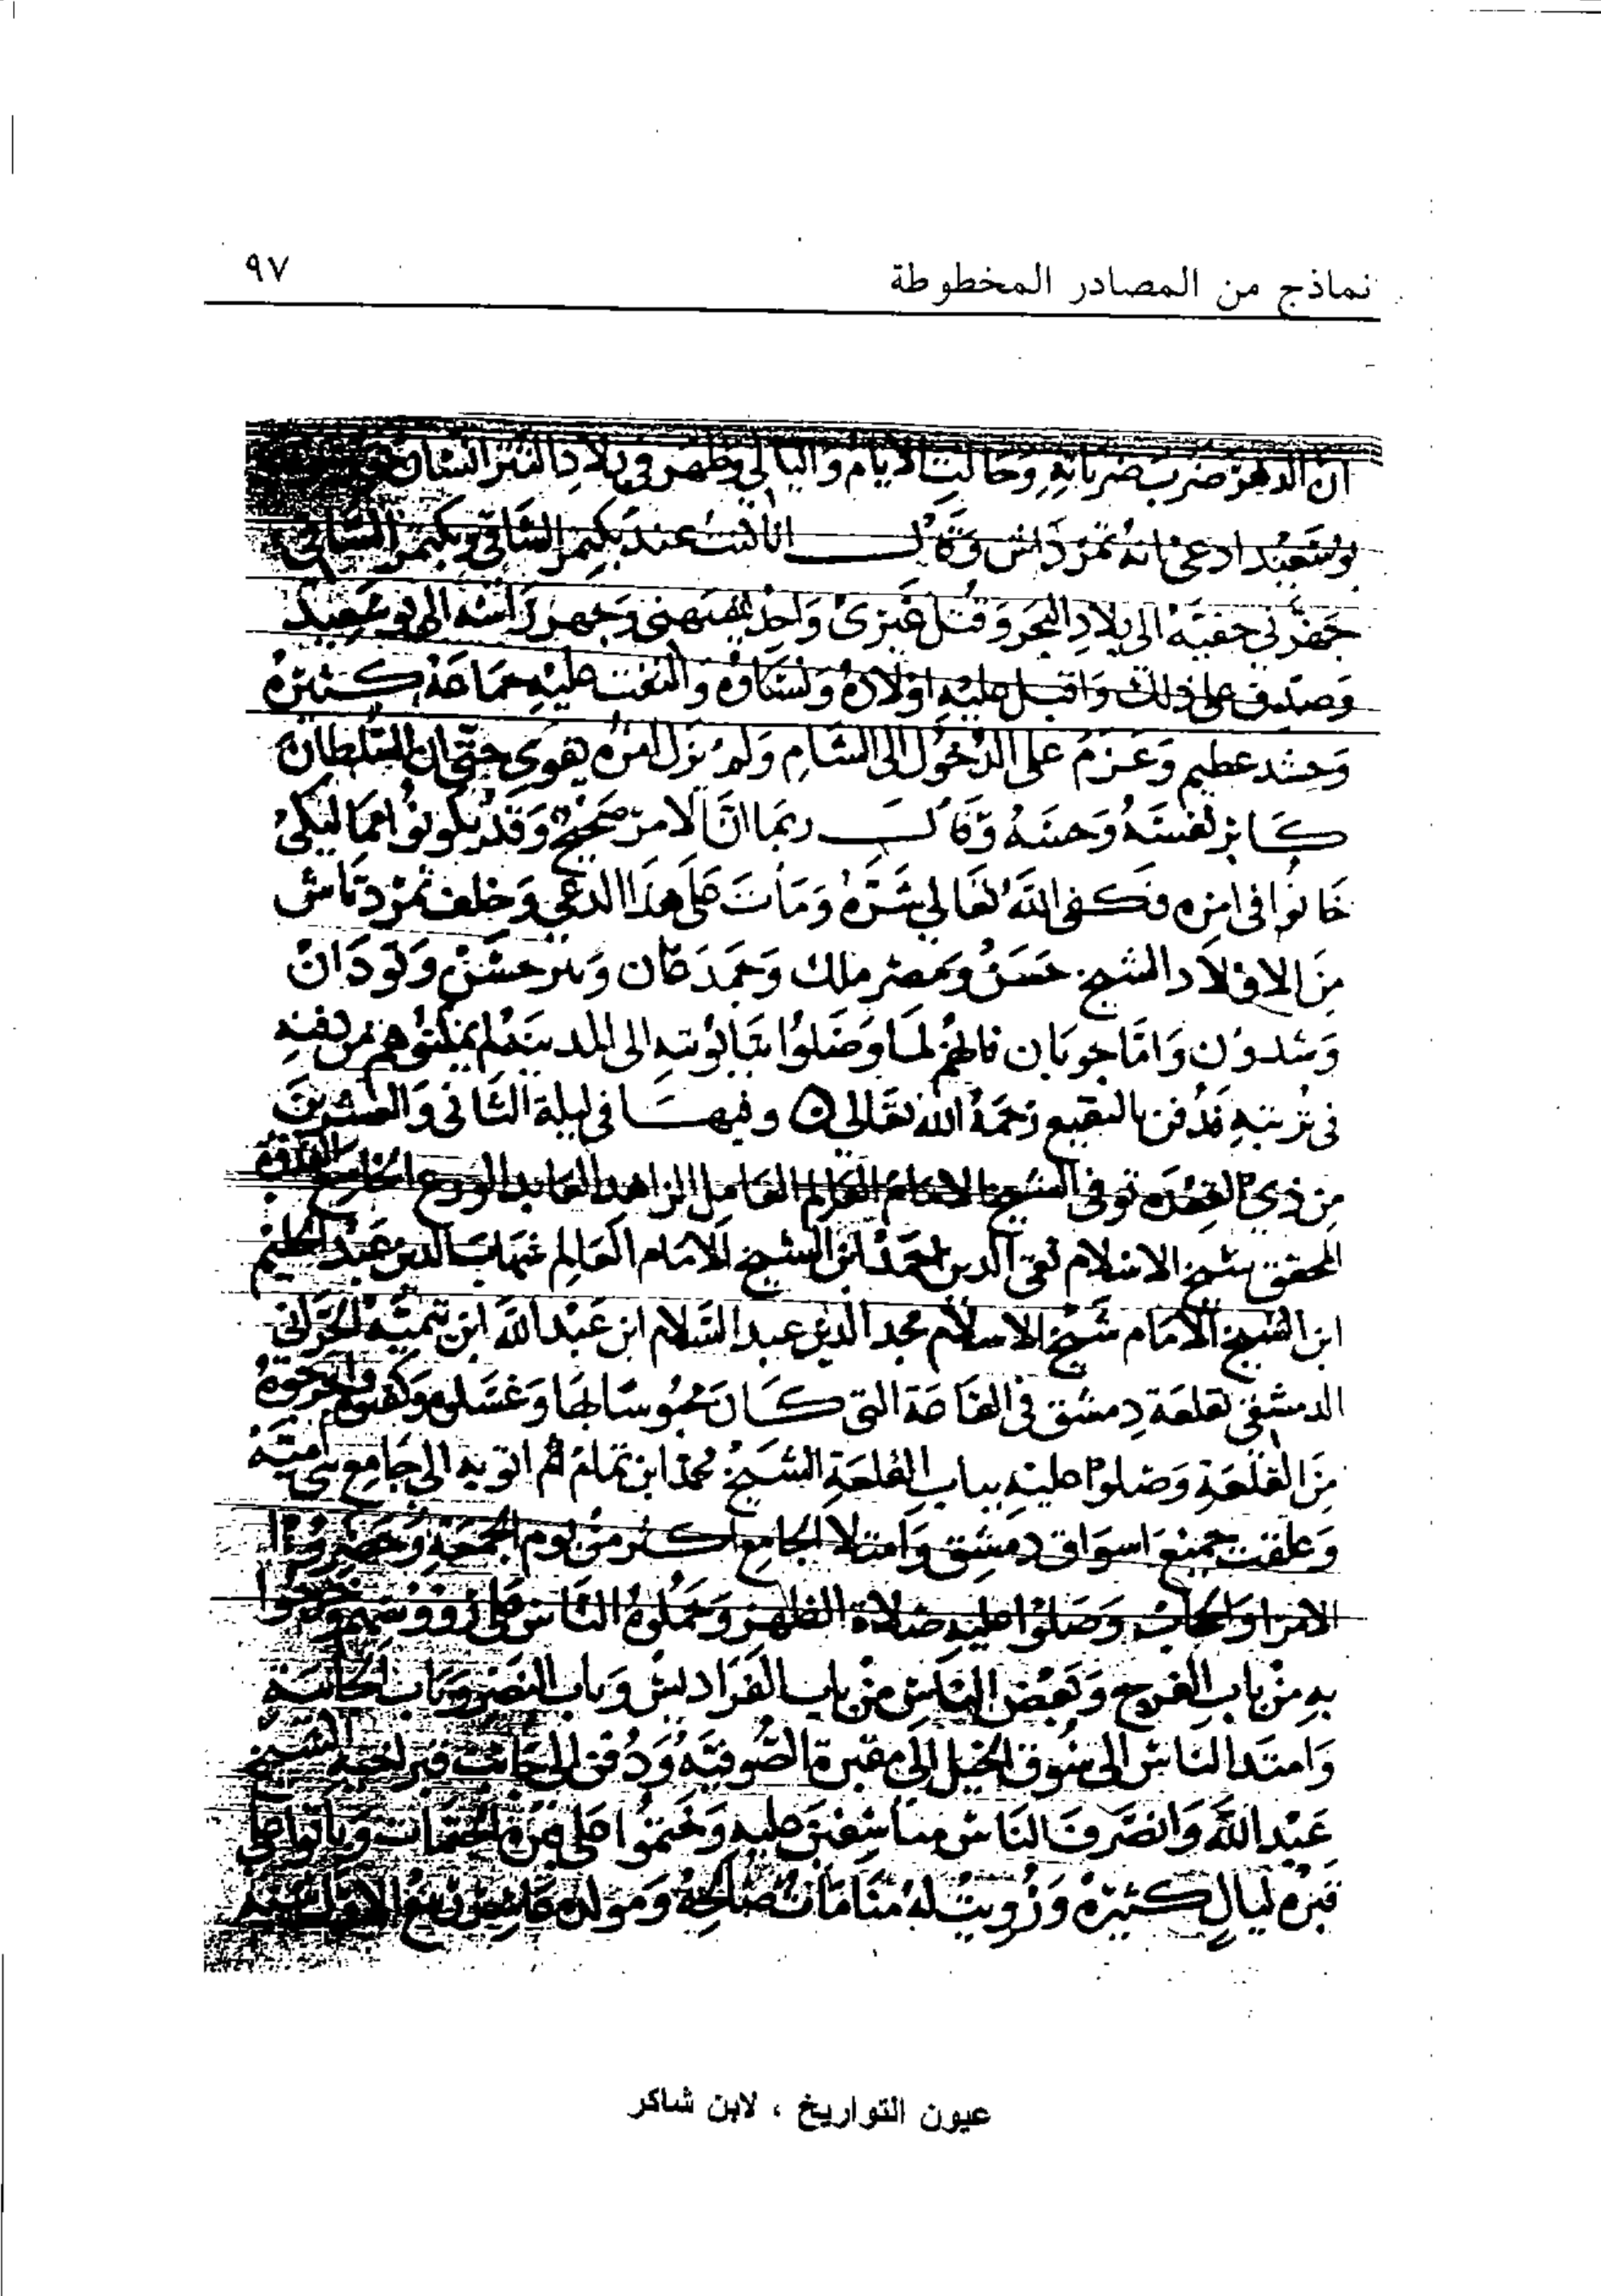 نماذج من المصادر المخطوطة
٩٧
ان الدهر ضرب ضرباته وحالت الايام والليالي وظهر في بلاد التتر انسان
بوسعيد ادعى انه تمرداش وقال انا كنت عند بكتمر الساقي وبكتمر الساقي
جهزني خفية الى بلاد البحر وقتل غيري واحد يشبهني وجهز راسه الى بوسعيد
وصدق على ذلك واقبل عليه اولاده ونساؤه والتفت عليه جماعة كثيرة
وحشد عظيم وعزم على الدخول الى الشام ولم يزل امره يقوى حتى ان السلطان
كابر نفسه وحسه وقال ربما ان الامر صحيح وقد يكونوا مماليكي
خانوا في امره فكفى الله تعالى شره ومات على هذا الدعي وخلف تمرداش
من الاولاد الشيخ حسن ومصر ملك وحمدكان وبير حسن وتودان
وشدون واما جوبان فانهم لما وصلوا بتابوته الى المدينة لم يمكنوهم من دفنه
في تربته فدفن بالبقيع رحمه الله تعالى ۞ وفيها في ليلة الثاني والعشرين
من ذي القعده توفى الشيخ الامام العالم العامل الزاهد العابد الورع الخاشع القدوة
المحقق شيخ الاسلام تقي الدين احمد ابن الشيخ الامام العالم شهاب الدين عبد الحليم
ابن الشيخ الامام شيخ الاسلام مجد الدين عبد السلام ابن عبد الله ابن تيمية الحراني
الدمشقي بقلعة دمشق في القاعة التي كان محبوسا بها وغسلوه وكفنوه واخرجوه
من القلعة وصلوا عليه بباب القلعة الشيخ محمد ابن تمام ثم اتو به الى جامع بني امية
وغلقت جميع اسواق دمشق وامتلا الجامع اكثر من يوم الجمعة وحضروا
الامرا والحجاب وصلوا عليه صلاة الظهر وحملوه الناس على رؤوسهم وخرجوا
به من باب الفرج وبعض الناس من باب الفراديس وباب النصر وباب الجابية
وامتد الناس الى سوق الخيل الى مقبرة الصوفية ودفن الى جانب قبر اخيه الشيخ
عبد الله وانصرف الناس متاسفين عليه وختموا على قبره الختمات وباتوا على
قبره ليال كثيرة ورويت له منامات صالحة ومولده عاشر ربيع الاول سنة
عيون التواريخ ، لابن شاكر